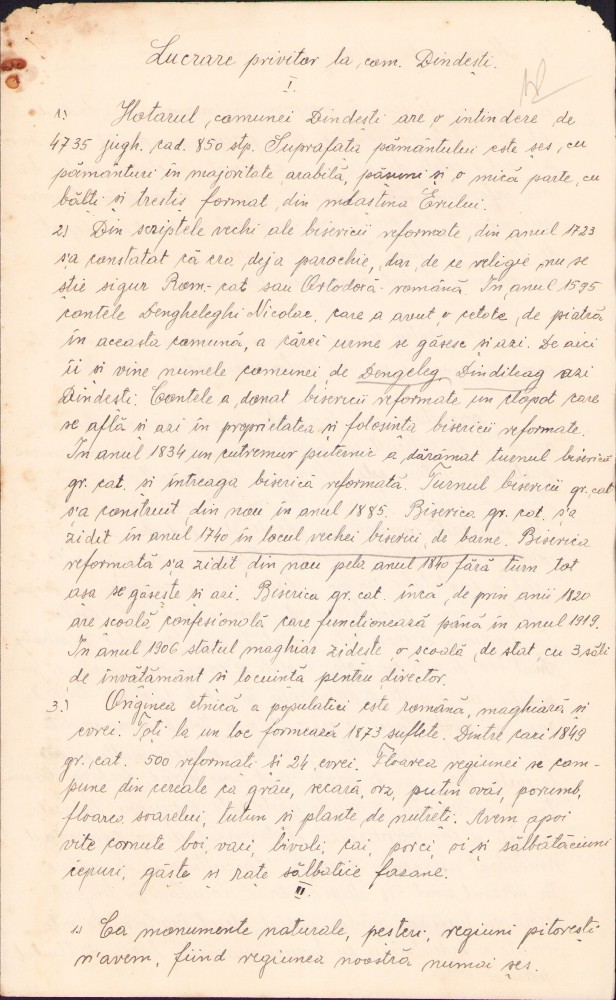 Lucrare privitor la com. Dindești.
I.
1.) Hotarul comunei Dindești are o intindere de
4735 jugh. cad. 850 stp. Suprafata pământului este șes, cu
pământuri în majoritate arabilă, pășuni și o mică parte, cu
bălți și trestiș format din mlaștina Erului.
2) Din scriptele vechi ale bisericii reformate, din anul 1723
s'a constatat că era deja parochie, dar de ce religie nu se
știe sigur Rom.-cat sau Ortodoxă-română. In anul 1595
contele Dengheleghi Nicolae, care a avut o cetate, de piatră
în aceasta comună, a cărei urme se găsesc și azi. De aici
îi si vine numele comunei de Dengeleg, Dindileag azi
Dindești. Contele a donat bisericii reformate un clopot care
se află si azi in proprietatea și folosința bisericii reformate.
In anul 1834 un cutremur puternic a dărâmat turnul biserică
gr. cat. si intreaga biserică reformată. Turnul bisericii gr. cat
s'a construit din nou in anul 1885. Biserica gr. cat. s'a
zidit în anul 1740 în locul vechei biserici de barne. Biserica
reformată s'a zidit din nou pela anul 1840 fără turn tot
asa se găsește si azi. Biserica gr. cat. încă, de prin anii 1820
are scoală confesională care functionează până în anul 1919.
In anul 1906 statul maghiar zideste o școală de stat cu 3 săli
de invătământ si locuință pentru director.
3.) Originea etnică a populatiei este română, maghiară și
evrei. Toți la un loc formează 1873 suflete. Dintre cari 1349
gr. cat. 500 reformati si 24 evrei. Floarea regiunei se com-
pune din cereale ca grâu, secară, orz, putin ovăs, porumb,
floarea soarelui, tutun si plante de nutreț. Avem apoi
vite cornute boi, vaci, bivoli, cai, porci, oi și sălbătăciuni
iepuri, gâște si rațe sălbatice fasane.
II
1) Ca monumente naturale, pesteri, regiuni pitorești
n'avem, fiind regiunea noastră numai șes.